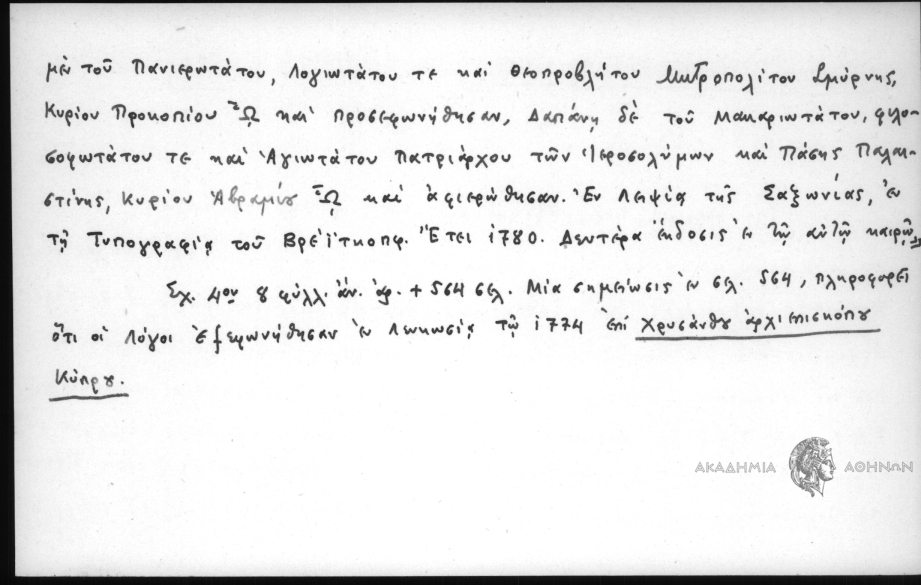 μὲν τοῦ Πανιερωτάτου, Λογιωτάτου τε καὶ Θεοπροβλήτου Μητροπολίτου Σμύρνης,
Κυρίου Προκοπίου καὶ προσεφωνήθησαν, Δαπάνῃ δὲ τοῦ Μακαριωτάτου, φιλο-
σοφωτάτου τε καὶ Ἁγιωτάτου Πατριάρχου τῶν Ἱεροσολύμων καὶ Πάσης Παλαι-
στίνης, Κυρίου Ἀβραμίου καὶ ἀφιερώθησαν. Ἐν Λειψίᾳ τῆς Σαξωνίας, ἐν
τῇ Τυπογραφίᾳ τοῦ Βρεΐτκοπφ. Ἔτει 1780. Δευτέρα ἔκδοσις ἐν τῷ αὐτῷ καιρῷ
Σχ. 4ον 8 φύλλ. ἀν. ἀρ. + 564 σελ. Μία σημείωσις ἐν σελ. 564, πληροφορεῖ
ὅτι οἱ λόγοι ἐξεφωνήθησαν ἐν Λευκωσίᾳ τῷ 1774 ἐπὶ Χρυσάνθου ἀρχιεπισκόπου
Κύπρου.
ΑΚΑΔΗΜΙΑ ΑΘΗΝΩΝ